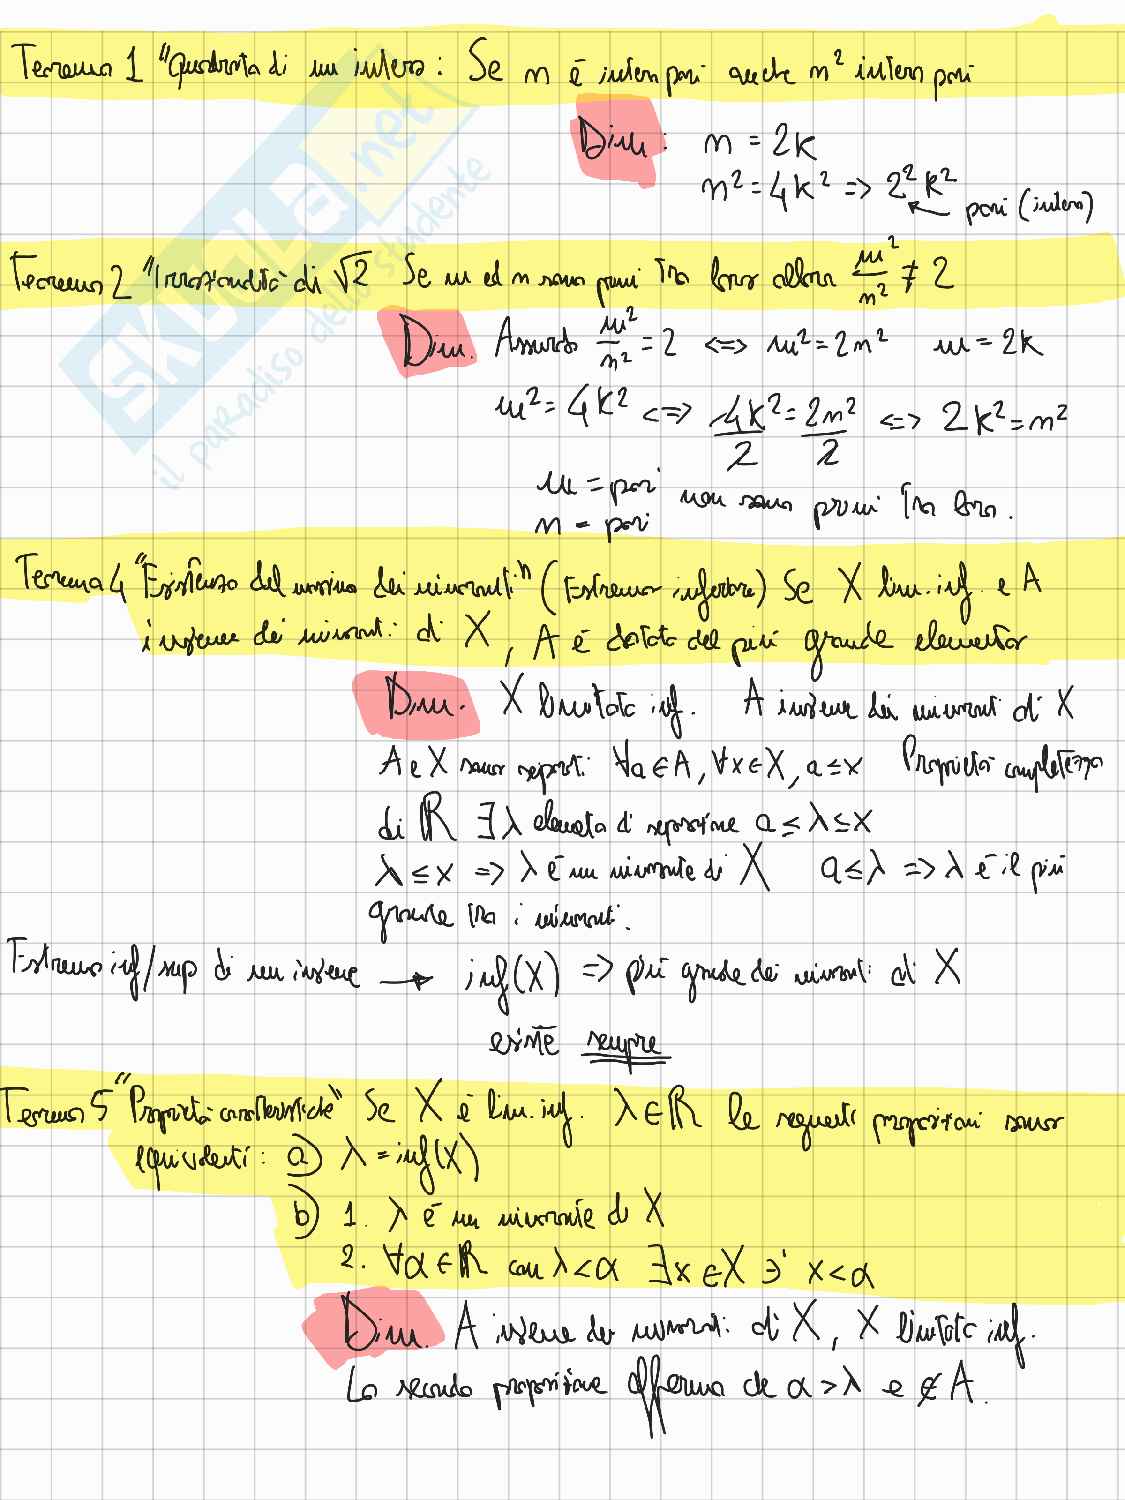 Teorema 1 "Quadrato di un intero: Se n é intero pari anche n² intero pari
Dim: n = 2k
n² = 4k² => 2²k²
pari (intero)
Teorema 2 "Irrazionalità di √2 Se m ed n sono primi tra loro allora m²/n² ≠ 2
Dim. Assurdo m²/n² = 2 <=> m² = 2n² m = 2k
m² = 4k² <=> 4k²/2 = 2n²/2 <=> 2k² = n²
m = pari non sono primi tra loro.
n = pari
Teorema 4 "Esistenza del massimo dei minoranti" (Estremo inferiore) Se X lim. inf. e A
insieme dei minoranti di X, A é dotato del più grande elemento
Dim. X limitato inf. A insieme dei minoranti di X
A e X sono separati ∀a∈A, ∀x∈X, a≤x Proprietà completezza
di ℝ ∃λ elemento di separazione a≤λ≤x
λ≤x => λ é un minorante di X a≤λ => λ é il più
grande tra i minoranti.
Estremo inf/sup di un insieme → inf(X) => più grande dei minoranti di X
esiste sempre
Teorema 5 "Proprietà caratteristiche" Se X é lim. inf. λ∈ℝ le seguenti proposizioni sono
equivalenti: a) λ = inf(X)
b) 1. λ é un minorante di X
2. ∀α∈ℝ con λ<α ∃x∈X ∋' x<α
Dim. A insieme dei minoranti di X, X limitato inf.
La seconda proposizione afferma che α>λ e ∉ A.
skuola.net
il paradiso dello studente